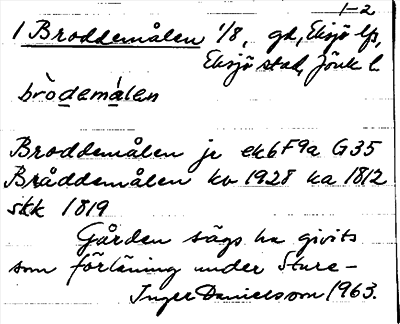 1-2
1 Broddemålen 1/8, gd, Eksjö lfs,
Eksjö stad, Jönk l.
bròdemàlen
Broddemålen jr ek6F9a G35
Bråddemålen ko 1928 ha 1812
skk 1819
Gården sägs ha givits
som förläning under Sture-
Inger Danielsson 1963.